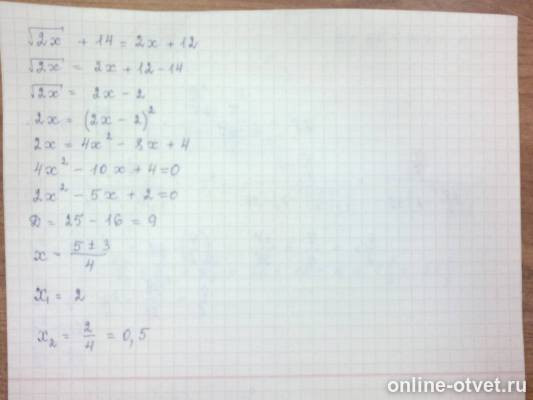 √2x + 14 = 2x + 12
√2x = 2x + 12 - 14
√2x = 2x - 2
2x = (2x - 2)²
2x = 4x² - 8x + 4
4x² - 10x + 4 = 0
2x² - 5x + 2 = 0
D = 25 - 16 = 9
x = (5 ± 3)/4
x₁ = 2
x₂ = 2/4 = 0,5
online-otvet.ru